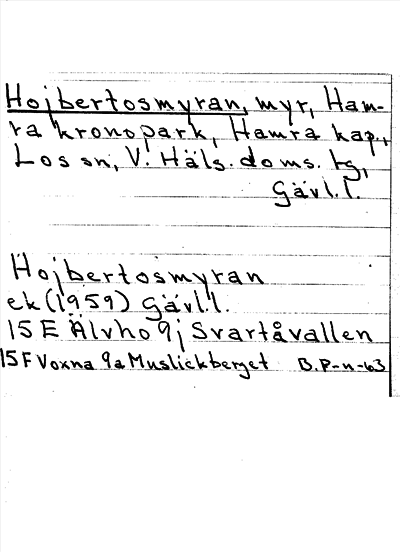 Hojbertosmyran, myr, Ham-
ra kronopark, Hamra kap.,
Los sn, V. Häls. doms. tg,
Gävl.l.
Hojbertosmyran
ek (1959) Gävl.l.
15 E Älvho 9j Svartåvallen
15 F Voxna 9a Muslickberget B.P-n-63